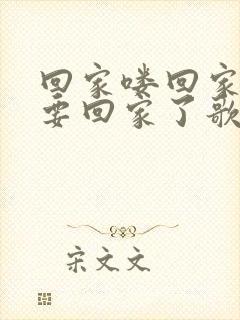 回家喽回家
要回家了歌
宋文文